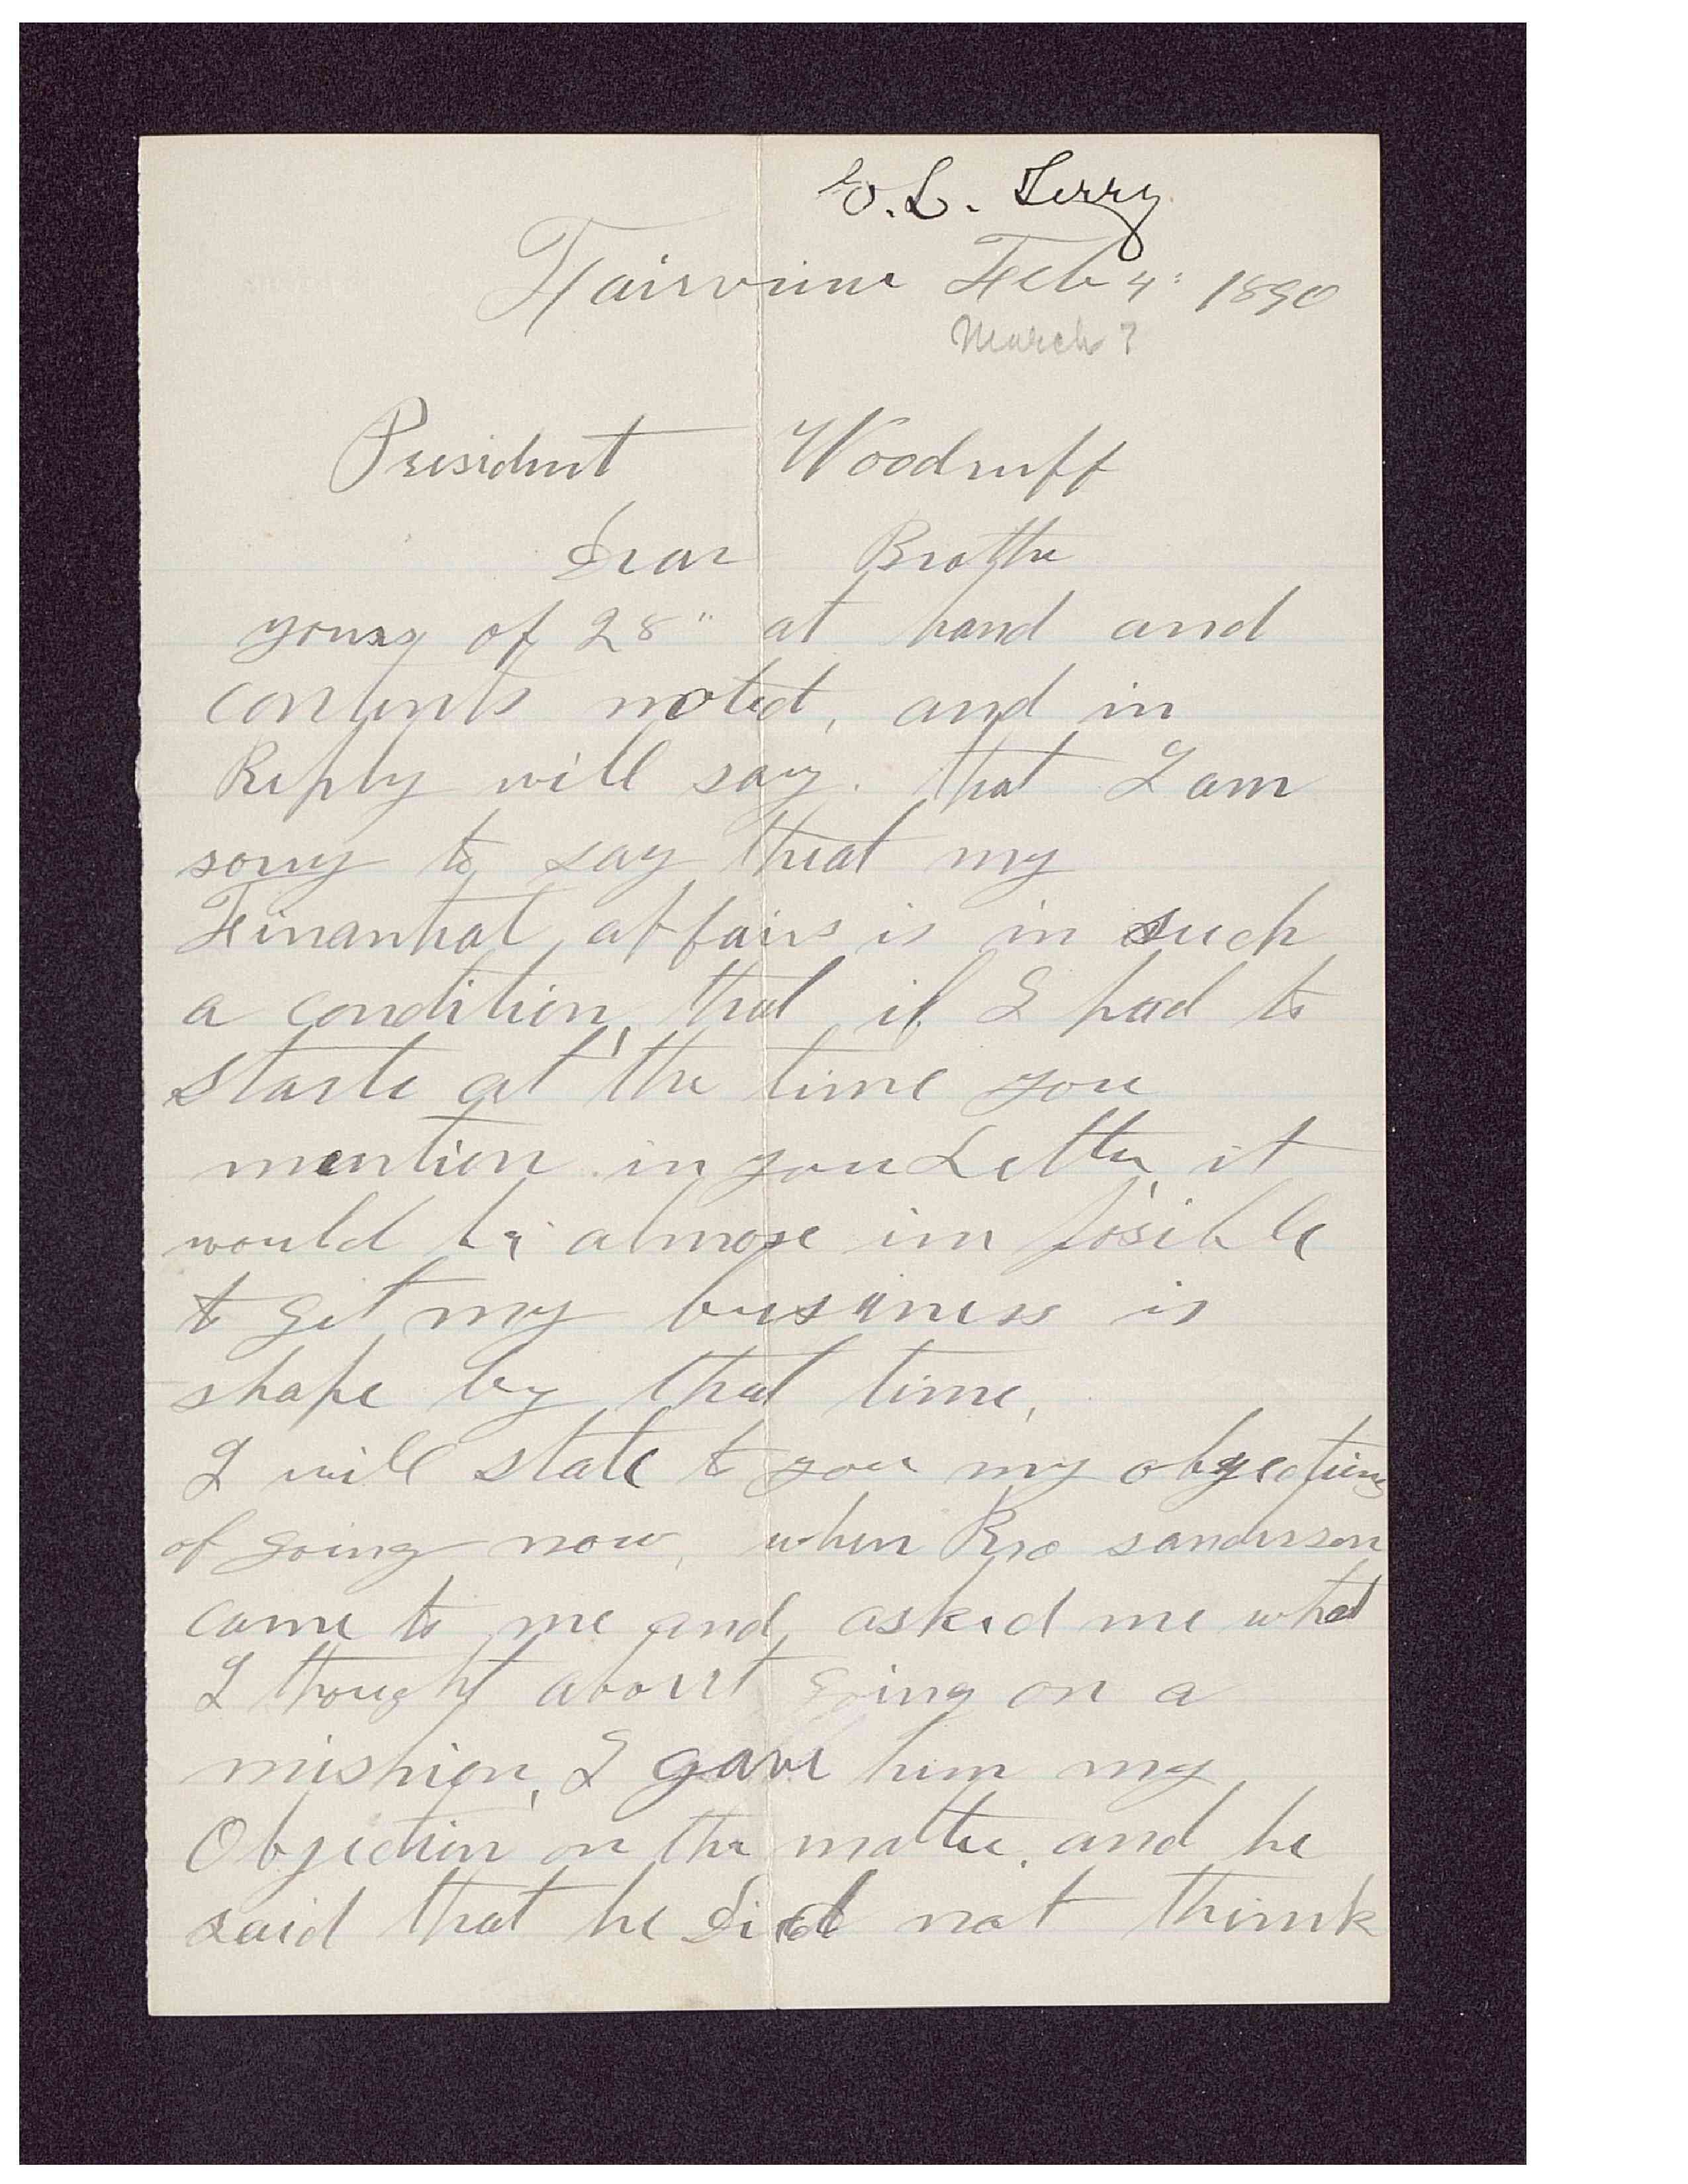 O. L. Terry
Fairview Feb 4" 1890
March ?
President Woodruff
Dear Brother
yours of 28" at hand and
contents noted, and in
Reply will say. that I am
sorry to say that my
Finantial affairs is in such
a condition, that if I had to
starte at the time you
mention in you Letter, it
would be almose imposible
to get my bussiness is
shape by that time,
I will state to you my objections
of going now, when Bro sanderson
came to me and asked me what
I thought about going on a
mishion, I gave him my
Objection on the matter. and he
said that he did not think